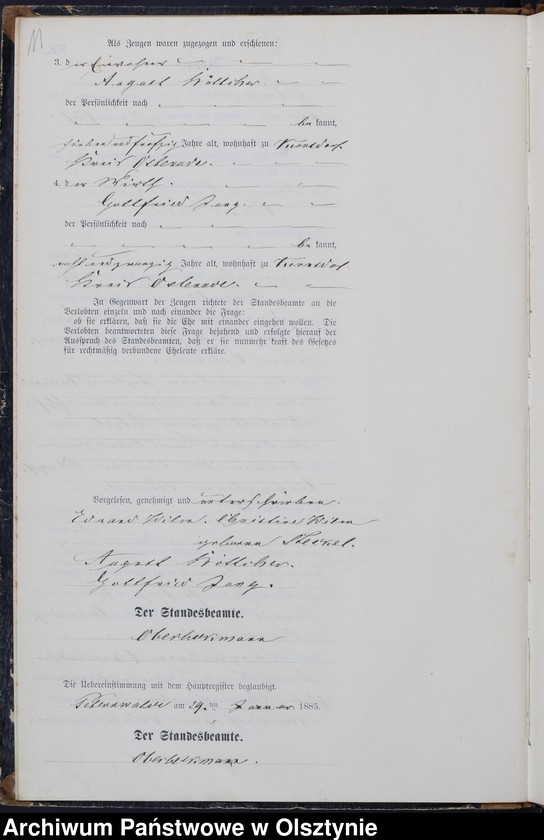 11
Als Zeugen waren zugezogen und erschienen:
3. der Einwohner
August Köllicher
der Persönlichkeit nach
bekannt,
siebenundfünfzig Jahre alt, wohnhaft zu
Kreis Osterode.
4. der Wirth
Gottfried Jang.
der Persönlichkeit nach
bekannt,
achtundzwanzig Jahre alt, wohnhaft zu
Kreis Osterode.
In Gegenwart der Zeugen richtete der Standesbeamte an die
Verlobten einzeln und nach einander die Frage:
ob sie erklären, daß sie die Ehe mit einander eingehen wollen. Die
Verlobten beantworteten diese Frage bejahend und erfolgte hierauf der
Ausspruch des Standesbeamten, daß er sie nunmehr kraft des Gesetzes
für rechtmäßig verbundene Eheleute erkläre.
Vorgelesen, genehmigt und unterschrieben.
Eduard Wilm. Christine Wilm
geborene Steckel.
August Köllicher.
Gottfried Jang.
Der Standesbeamte.
Oberbeckmann
Die Uebereinstimmung mit dem Hauptregister beglaubigt.
Peterswalde am 29.ten Januar 1885.
Der Standesbeamte.
Oberbeckmann.
Archiwum Państwowe w Olsztynie